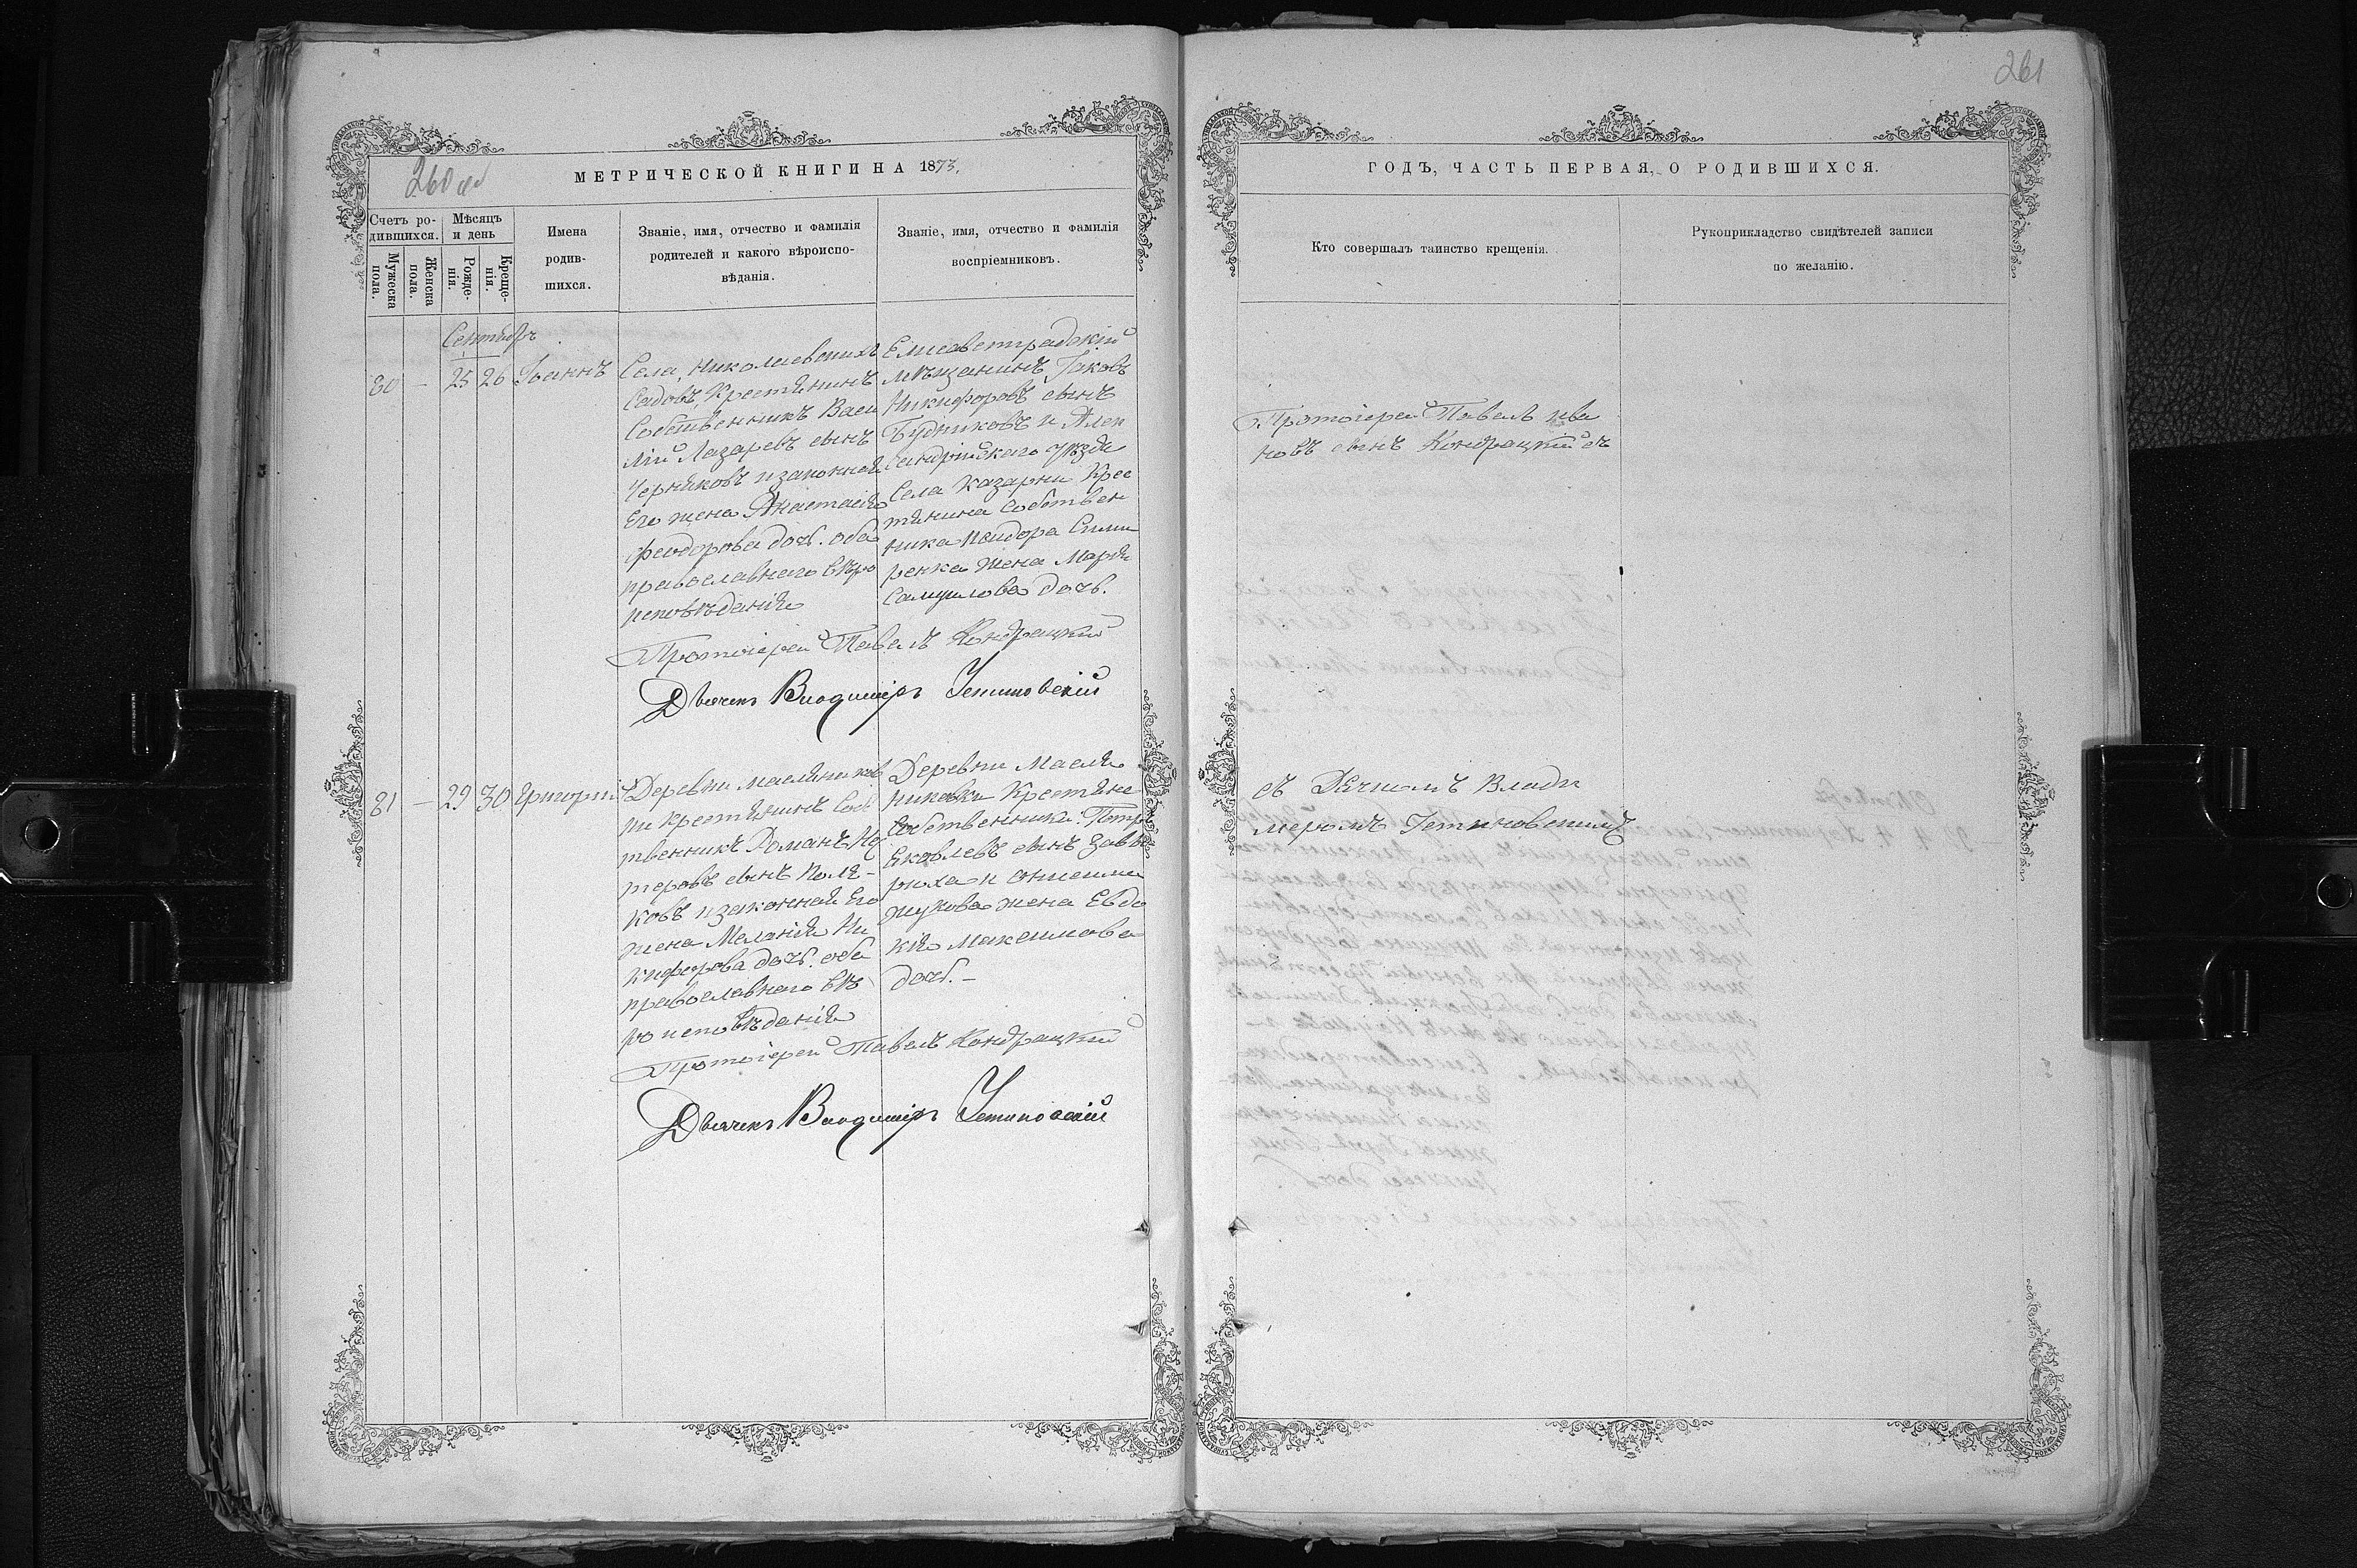 260 об
МЕТРИЧЕСКОЙ КНИГИ НА 1873,
Счетъ ро-
дившихся.
Мѣсяцъ
и день
Мужеска
пола.
Женска
пола.
Рожде-
нія.
Креще-
нія.
Имена
родив-
шихся.
Званіе, имя, отчество и фамилія
родителей и какого вѣроиспо-
вѣданія.
Званіе, имя, отчество и фамилія
воспріемниковъ.
Сентябрь
80 – 25 26 Іоаннъ
Села Николаевскихъ
Садовъ, Крестянинъ
Собственникъ Васи
лій Лазаревъ сынъ
Черняковъ и законная
Его жена Анастасія
Феодорова дочь. оба
православнаго вѣро
исповѣданія
Елисаветградскій
мѣщанинъ Іаковъ
Никифоровъ сынъ
Будниковъ и Алек
сандрійскаго уѣзда
Села Казарни Крес
тянина Собствен
ника Исидора Сими
ренка жена Марія
Самуилова дочь.
Протоіерей Павелъ Кондрацкій
Дьячекъ Владиміръ Устиновскій
81 – 29 30 Григорій
Деревни Масляников
ки Крестянинъ Собс
твенникъ Романъ Пе
теровъ сынъ Поля-
ковъ и законная Его
жена Меланія Ни
кифорова дочь. оба
православнаго вѣ
роисповѣданія
Деревни Масля
никовки Крестяне
Собственники: Петръ
Яковлевъ сынъ Завѣ
рюха и Онисима
Жукова жена Евдо
кія Максимова
дочь. –
Протоіерей Павелъ Кондрацкій
Дьячекъ Владиміръ Устиновскій
261
ГОДЪ, ЧАСТЬ ПЕРВАЯ, О РОДИВШИХСЯ.
Кто совершалъ таинство крещенія.
Рукоприкладство свидѣтелей записи
по желанію.
Протоіерей Павелъ Ива
новъ сынъ Кондрацкій съ
съ Дячкомъ Влади
меромъ Устиновскимъ